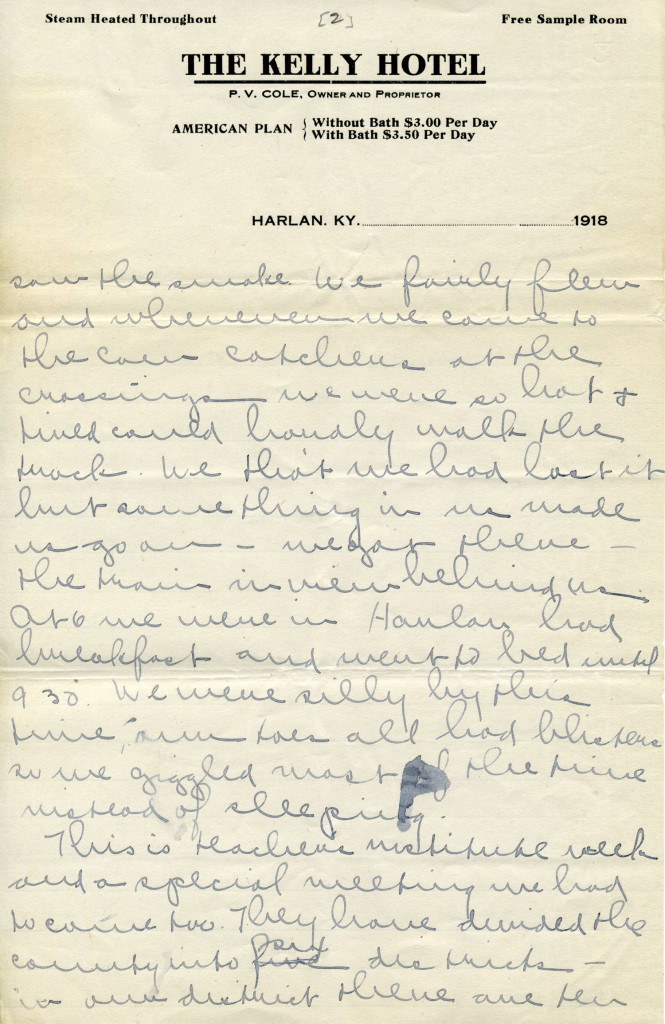 Steam Heated Throughout [2] Free Sample Room
THE KELLY HOTEL
P. V. COLE, OWNER AND PROPRIETOR
AMERICAN PLAN { Without Bath $3.00 Per Day
With Bath $3.50 Per Day
HARLAN. KY. 1918
saw the smoke. We fairly flew
and whenever we came to
the cow catchers at the
crossings we were so hot &
tired could hardly walk the
track. We tho't we had lost it
but something in us made
us go on - we got there -
the train in view behind us.
At 6 we were in Harlan had
breakfast and went to bed until
9 30. We were silly by this
time, our toes all had blisters
so we giggled most of the time
instead of sleeping.
This is teachers institute week
and a special meeting we had
to come too. They have divided the
county into five six districts -
in our district there are ten